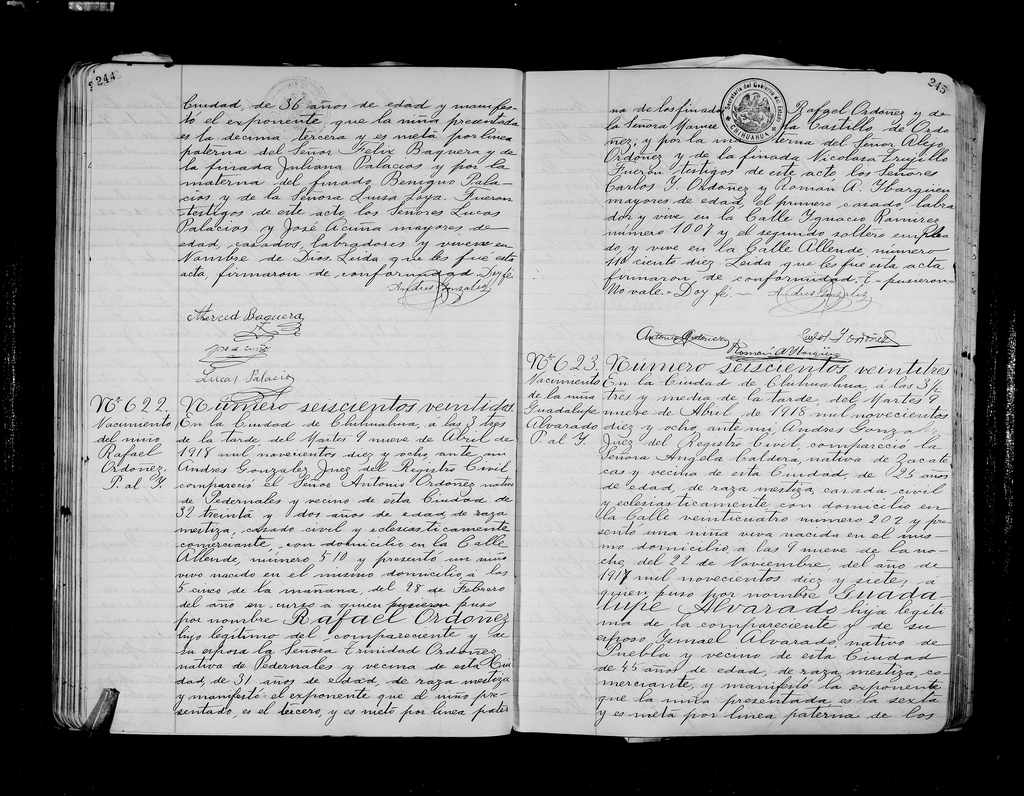 244
Ciudad, de 36 años de edad y manifes-
tó el exponente que la niña presentada
es la decima tercera y es nieta por linea
paterna del Señor Felix Baquera y de
la finada Juliana Palacios y por la
materna del finado Benigno Pala-
cios y de la Señora Luisa Loya. Fueron
testigos de este acto los Señores Lucas
Palacios y José Acuña mayores de
edad, casados, labradores y viven en
Nombre de Dios. Leida que les fué esta
acta, firmaron de conformidad. Doy fé.
Andres Gonzalez
Merced Baquera
Lucas Palacio
Nº 622.
Nacimiento
del niño
Rafael
Ordonez.
P al Y.
Numero seiscientos veintidos.
En la Ciudad de Chihuahua, a las 3 tres
de la tarde del Martes 9 nueve de Abril de
1918 mil novecientos diez y ocho ante mi
Andres Gonzalez Juez del Registro Civil
compareció el Señor Antonio Ordoñez nativo
de Pedernales y vecino de esta Ciudad de
32 treinta y dos años de edad de raza
mestiza, casado civil y eclesiasticamente
comerciante, con domicilio en la Calle
Allende, número 510 y presentó un niño
vivo nacido en el mismo domicilio a las
5 cinco de la mañana, del 28 de Febrero
del año en curso a quien pusieron puso
por nombre Rafael Ordonez
hijo legitimo del compareciente y de
su esposa la Señora Trinidad Ordoñez
nativa de Pedernales y vecina de esta Ciu
dad, de 31 años de edad, de raza mestiza
y manifestó el exponente que el niño pre-
sentado, es el tercero, y es nieto por linea pater
245
Secretaria del Gobierno del Estado
CHIHUAHUA
na de los finados Rafael Ordoñez y de
la Señora Castillo de Ordo
ñez, y por la materna del Señor Alejo
Ordoñez y de la finada Nicolasa Trujillo
Fueron testigos de este acto los Señores
Carlos Y. Ordoñez y Román A. Ybargüen
mayores de edad, el primero casado labra
dor y vive en la Calle Ygnacio Ramirez
número 1007 y el segundo soltero emplea
do, y vive en la Calle Allende, número
110 ciento diez Leida que les fué esta acta
firmaron de conformidad. T - pusieron-
No vale.- Doy fé. - Andres Gonzalez
Antonio Ordoñez
Carlos Y Ordoñez
Román A Ybargüen
Nº 623.
Nacimiento
de la niña
Guadalupe
Alvarado
P al Y.
Número seiscientos veintitres
En la Ciudad de Chihuahua, a las 3½
tres y media de la tarde, del Martes 9
nueve de Abril de 1918 mil novecientos
diez y ocho, ante mi Andres Gonzalez
Juez del Registro Civil, compareció la
Señora Angela Caldera, nativa de Zacate
cas y vecina de esta Ciudad, de 25 años
de edad, de raza mestiza, casada civil
y eclesiasticamente, con domicilio en
la Calle veinticuatro número 202 y pre
sentó una niña viva nacida en el mis-
mo domicilio, a las 9 nueve de la no-
che, del 22 de Noviembre, del año de
1917 mil novecientos diez y siete, a
quien puso por nombre Guada-
lupe Alvarado hija legíti
ma de la compareciente y de su
esposo, Ysmael Alvarado, nativo de
Puebla y vecino de esta Ciudad
de 45 años de edad, de raza mestiza, co-
merciante, y manifestó la exponente
que la niña presentada es la sexta
y es nieta por linea paterna de los